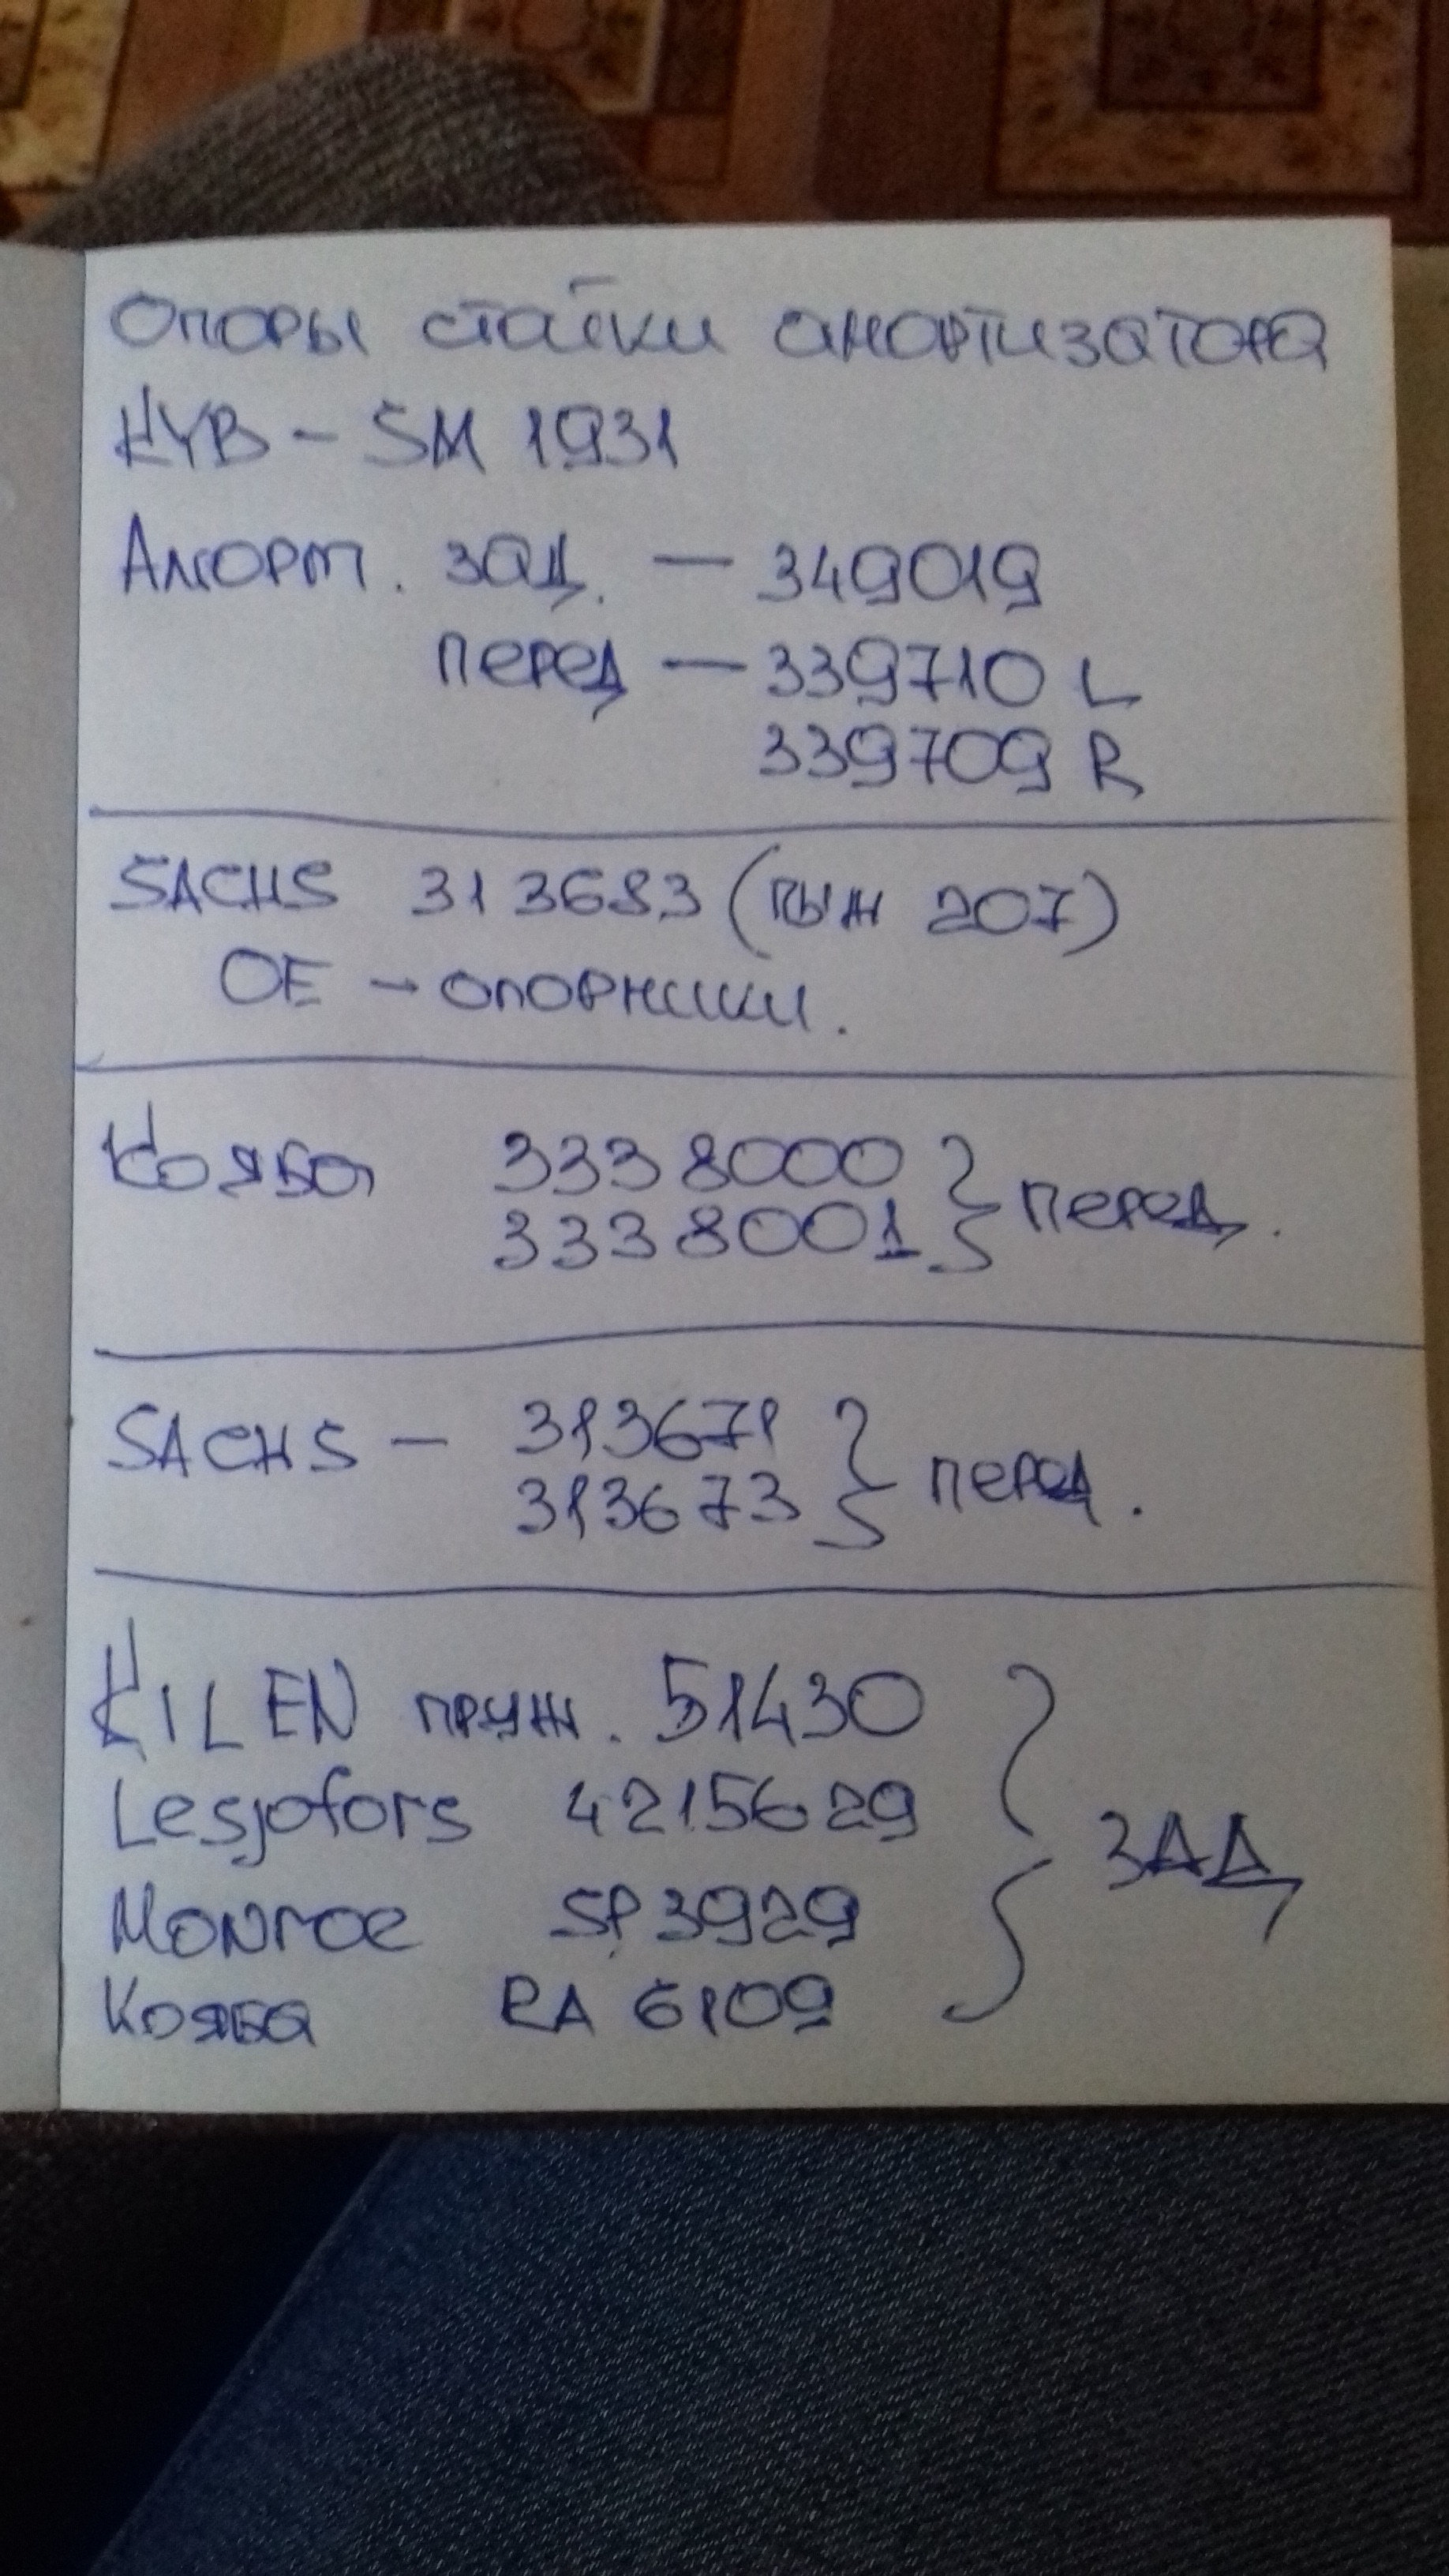 Опоры стойки амортизатора
KYB - SM 1931
Аморт. зад. - 349019
перед - 339710 L
339709 R
SACHS 313683 (пыж 207)
OE - опорники.
Кояба 3338000
3338001 } перед.
SACHS - 313671
313673 } перед.
KILEN пруж. 51430
Lesjofors 4215629
Monroe SP3929
Кояба RA 6109
} ЗАД